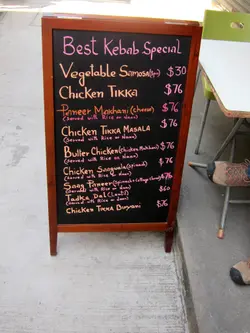 Best Kebab Special
Vegetable Samosa $30
Chicken Tikka $76
Paneer Makhani (cheese) $76
(served with Rice or Naan)
Chicken Tikka Masala $76
(served with Rice or Naan)
Butter Chicken (Chicken Makhani) $76
(served with Rice or Naan)
Chicken $76
(served with Rice or Naan)
Saag Paneer
(served with Rice or Naan) $60
Tadka Dal (Lentil)
(served with Rice or Naan) $76
Chicken Tikka Biryani